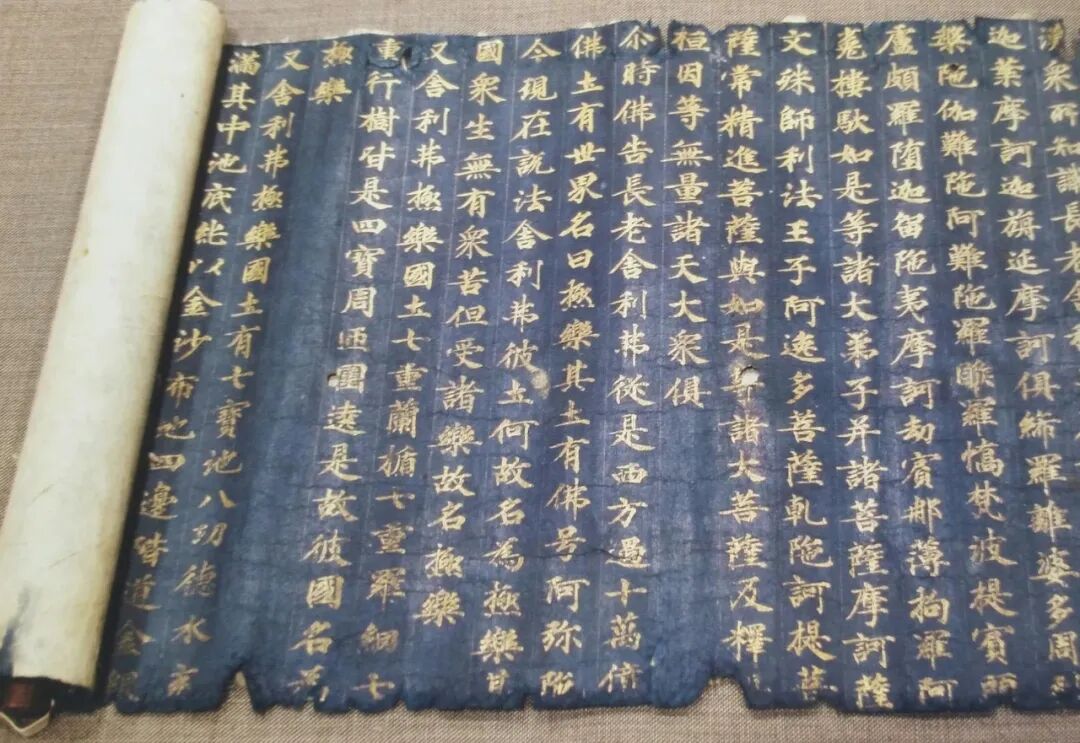 衆所知識長老舍利
迦葉摩訶迦旃延摩訶俱絺羅離婆多周
槃陁伽難陁阿難陁羅睺羅憍梵波提賓頭
盧頗羅堕迦留陁夷摩訶劫賓那薄拘羅阿
㝹樓馱如是等諸大弟子并諸菩薩摩訶薩
文殊師利法王子阿逸多菩薩乹陁訶提菩
薩常精進菩薩與如是等諸大菩薩及釋
桓因等無量諸天大衆俱
尒時佛告長老舍利弗從是西方過十萬億
佛土有世界名曰極樂其土有佛号阿弥陁
今現在說法舍利弗彼土何故名為極樂其
國衆生無有衆苦但受諸樂故名極樂
又舍利弗極樂國土七重蘭楯七重羅網七
重行樹皆是四寶周迊圍遶是故彼國名為
極樂
又舍利弗極樂國土有七寶池八功德水充
滿其中池底純以金沙布地四邊階道金銀